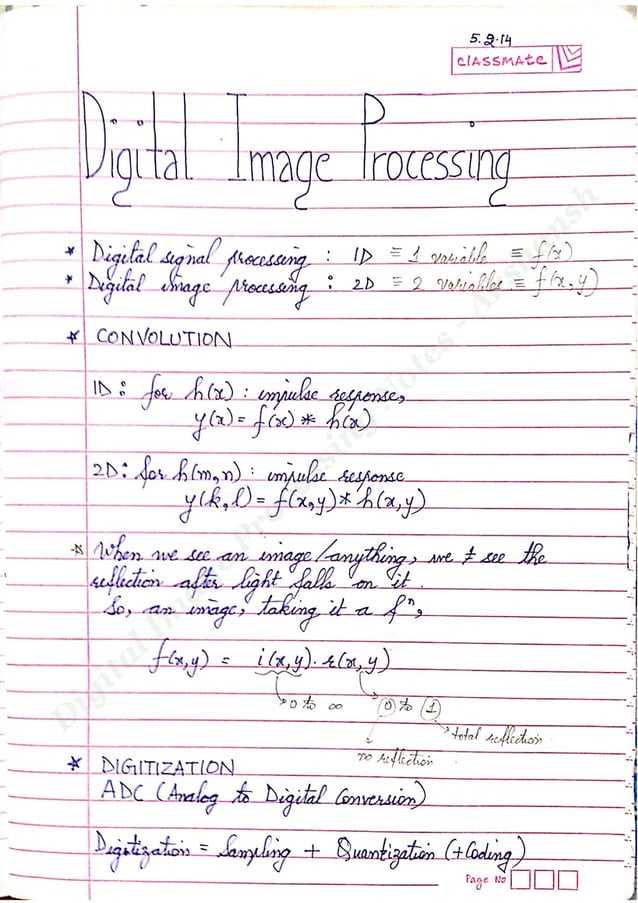 5.2.14
classmate
Digital Image Processing
* Digital signal processing : 1D ≡ 1 variable ≡ f(x)
* Digital image processing : 2D ≡ 2 variables ≡ f(x,y)
* CONVOLUTION
1D: for h(x) : impulse response,
y(x) = f(x) * h(x)
2D: for h(m,n) : impulse response
y(k,l) = f(x,y) * h(x,y)
* When we see an image/anything, we see the
reflection after light falls on it.
So, an image, taking it a fⁿ,
f(x,y) = i(x,y) . r(x,y)
0 to ∞ 0 to 1
total reflection
no reflection
* DIGITIZATION
ADC (Analog to Digital Conversion)
Digitization = Sampling + Quantization (+Coding)
Page No
Digital Image Processing Notes - Anshansh